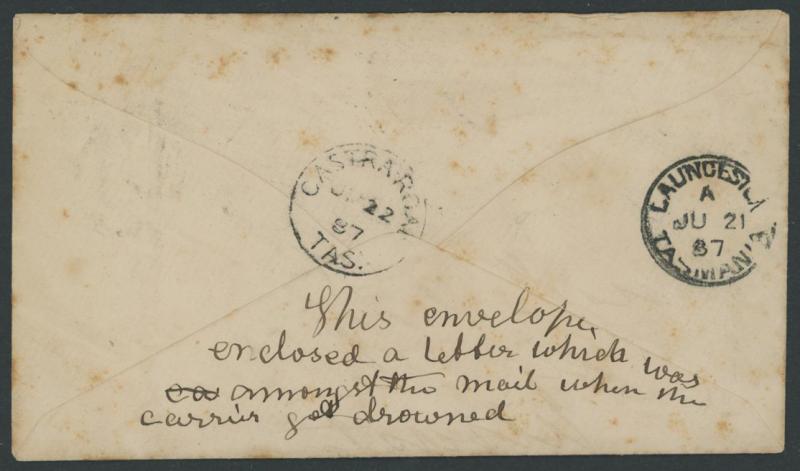 CASTRA ROAD
JU 22
87
TAS.
LAUNCESTON
A
JU 21
87
TASMANIA
This envelope
enclosed a letter which was
ca amongst the mail when the
carrier got drowned